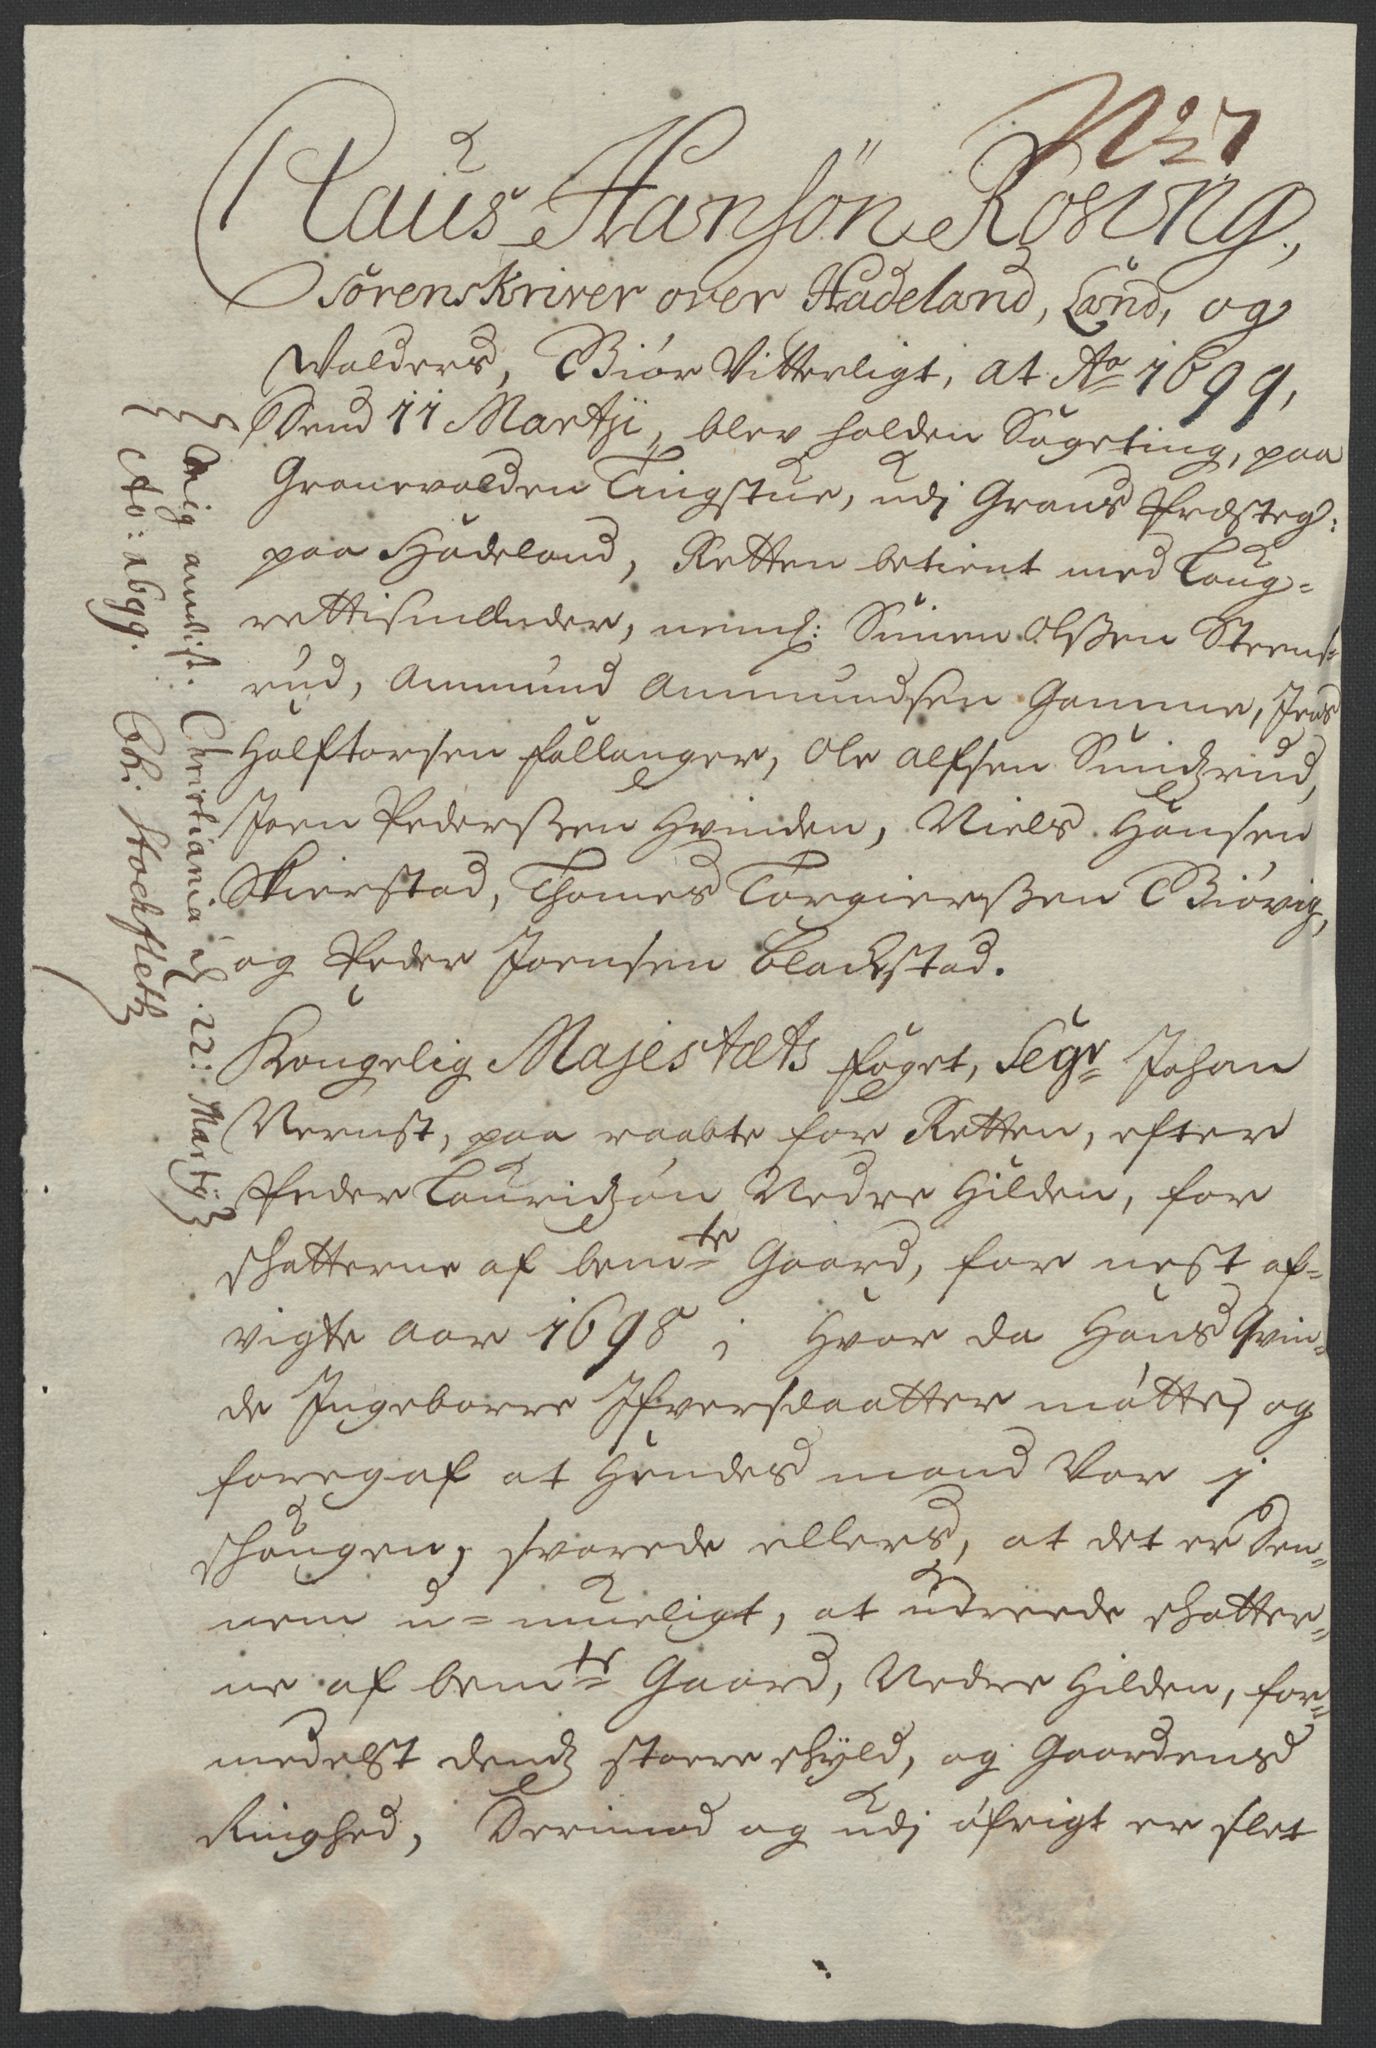 No 7
Claus Hansøn Rosing,
Sorenskriver over Hadeland, Land, og
Walders, Giør Vitterligt, at Ao 1699,
Dend 11 Martji, blev holden Sageting, paa
Granevolden Tingstue, udj Grans Præsteg:
paa Hadeland, Retten betient med Laug=
rettismænder, neml: Simen Olsßen Steens=
rud, Ammund Ammundsen Gamme, Jens
Halftorsen Fallanger, Ole Alfsen Sundzrud,
Joen Pederßen Hvinden, Niels Hansen
Skierstad, Thomes Torgierßen Giøvig,
og Peder Joensen Blackstad.
Kongelig Majestæts Foget, Segr Johan
Vernst, paa raabte for Retten, efter
Peder Lauridzøn Nedre Hilden, for
schatterne af bemte Gaard, for nest af=
vigte aar 1698; Hvor da Hans Qvin=
de Ingeborre Ifversdaatter møtte, og
foregaf at Hendes mand Var i
schougen, svarede ellers, at det er den=
nem u=mueligt, at udreede schatter=
ne af bemte Gaard, Nedre Hilden, for=
medelst dendz stoere schyld, og Gaardens
Ringhed, Derimod og udj øfrigt er slet
Mig anvist. Christiania d. 22: Martij
Ao: 1699.
Ch: Stockfleth